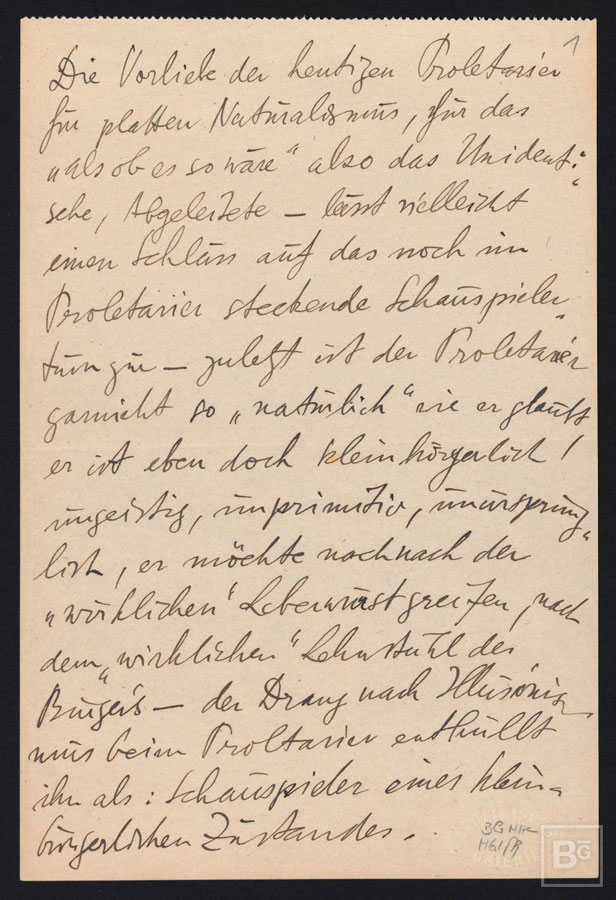 1
Die Vorliebe der heutigen Proletarier
für platten Naturalismus, für das
„als ob es so wäre“ also das Unidenti-
sche, Abgeleitete – lässt vielleicht
einen Schluss auf das noch im
Proletarier steckende Schauspieler
tum zu – zuletzt ist der Proletarier
garnicht so „natürlich“ wie er glaubt
er ist eben doch kleinbürgerlich!
ungeistig, unprimitiv, unursprüng
lich, er möchte noch nach der
„wirklichen“ Leberwurst greifen, nach
dem „wirklichen“ Lehnstuhl des
Bürgers – der Drang nach Illusionis
mus beim Proltarier enthüllt
ihn als: Schauspieler eines klein-
bürgerlichen Zustandes.
BG HHC
BG